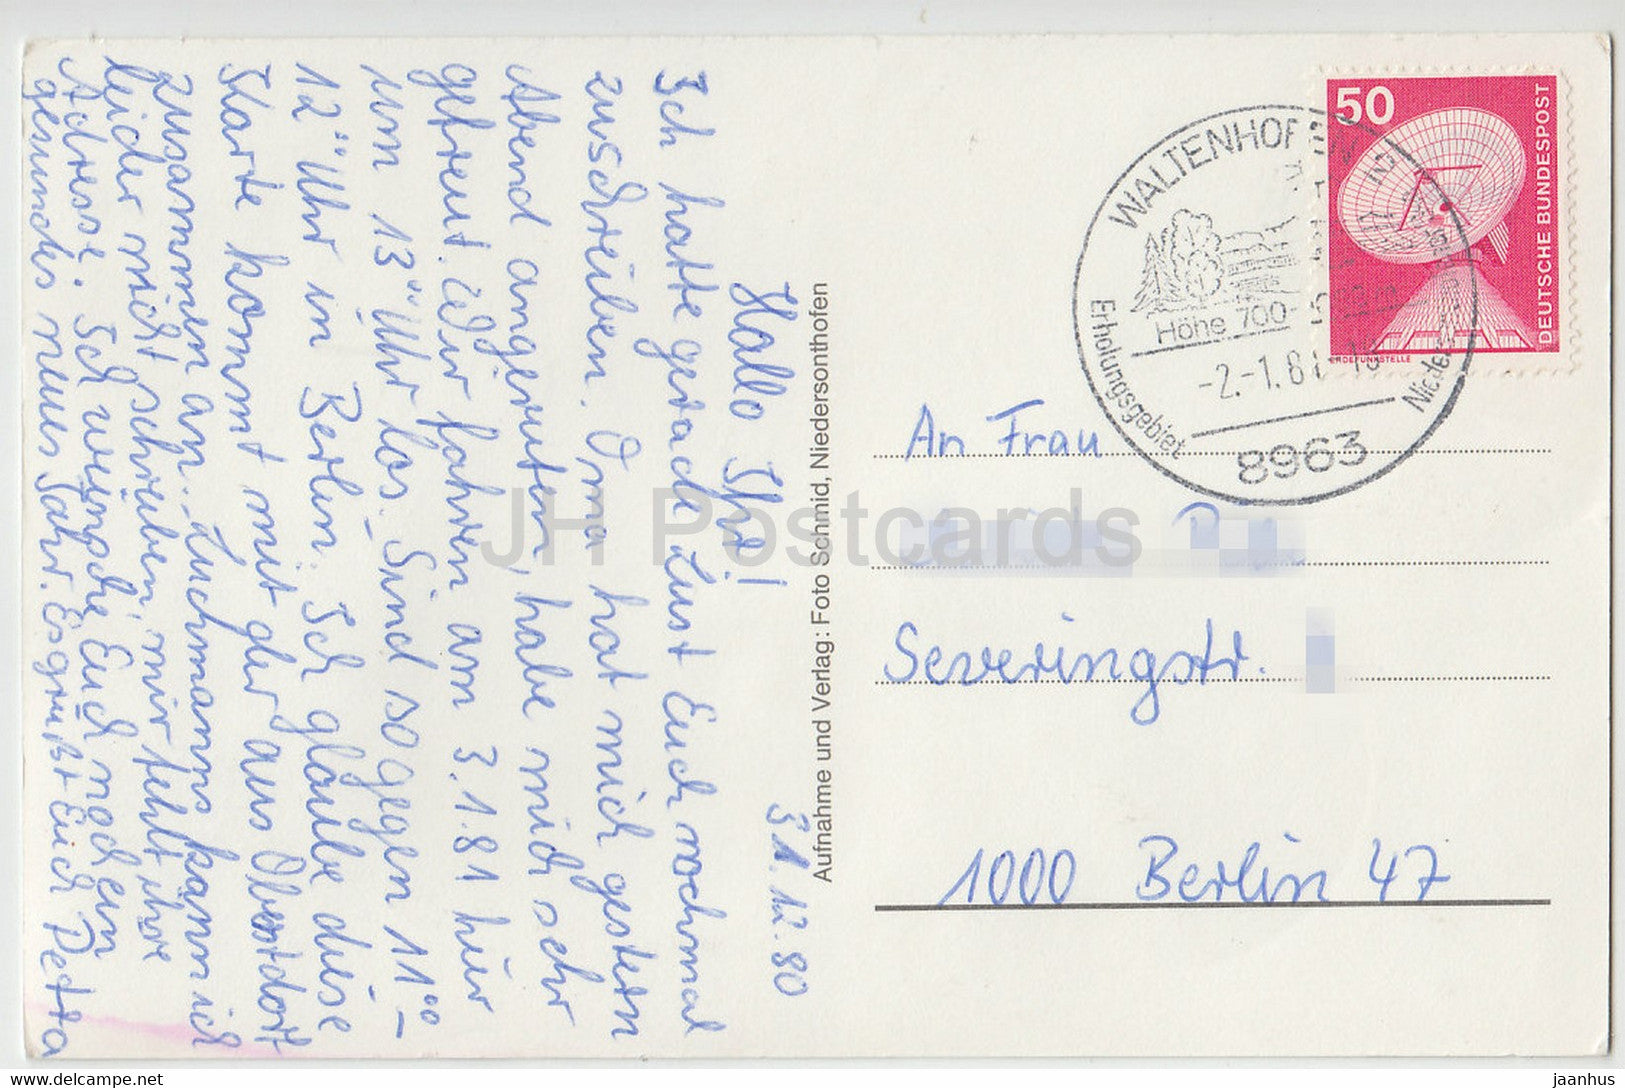 31.12.80
Hallo Ihr!
Ich hatte gerade Lust Euch nochmal
zuschreiben. Oma hat mich gestern
Abend angerufen, habe mich sehr
gefreut. Wir fahren am 3.1.81 hier
um 13°° Uhr los. Sind so gegen 11°°-
12°° Uhr in Berlin. Ich glaube diese
Karte kommt mit der aus Oberstdorf
zusammen an. Luchmanns kann ich
leider nicht schreiben, mir fehlt ihre
Adresse. Ich wünsche Euch noch ein
gesundes neues Jahr. Es grüßt Euch Petra
Aufnahme und Verlag: Foto Schmid, Niedersonthofen
50
DEUTSCHE BUNDESPOST
ERDEFUNKSTELLE
WALTENHOFEN
Höhe 700-
-2.-1.81-
Erholungsgebiet
8963
An Frau
Severingstr.
1000 Berlin 47
JH Postcards
www.delcampe.net
jaanhus